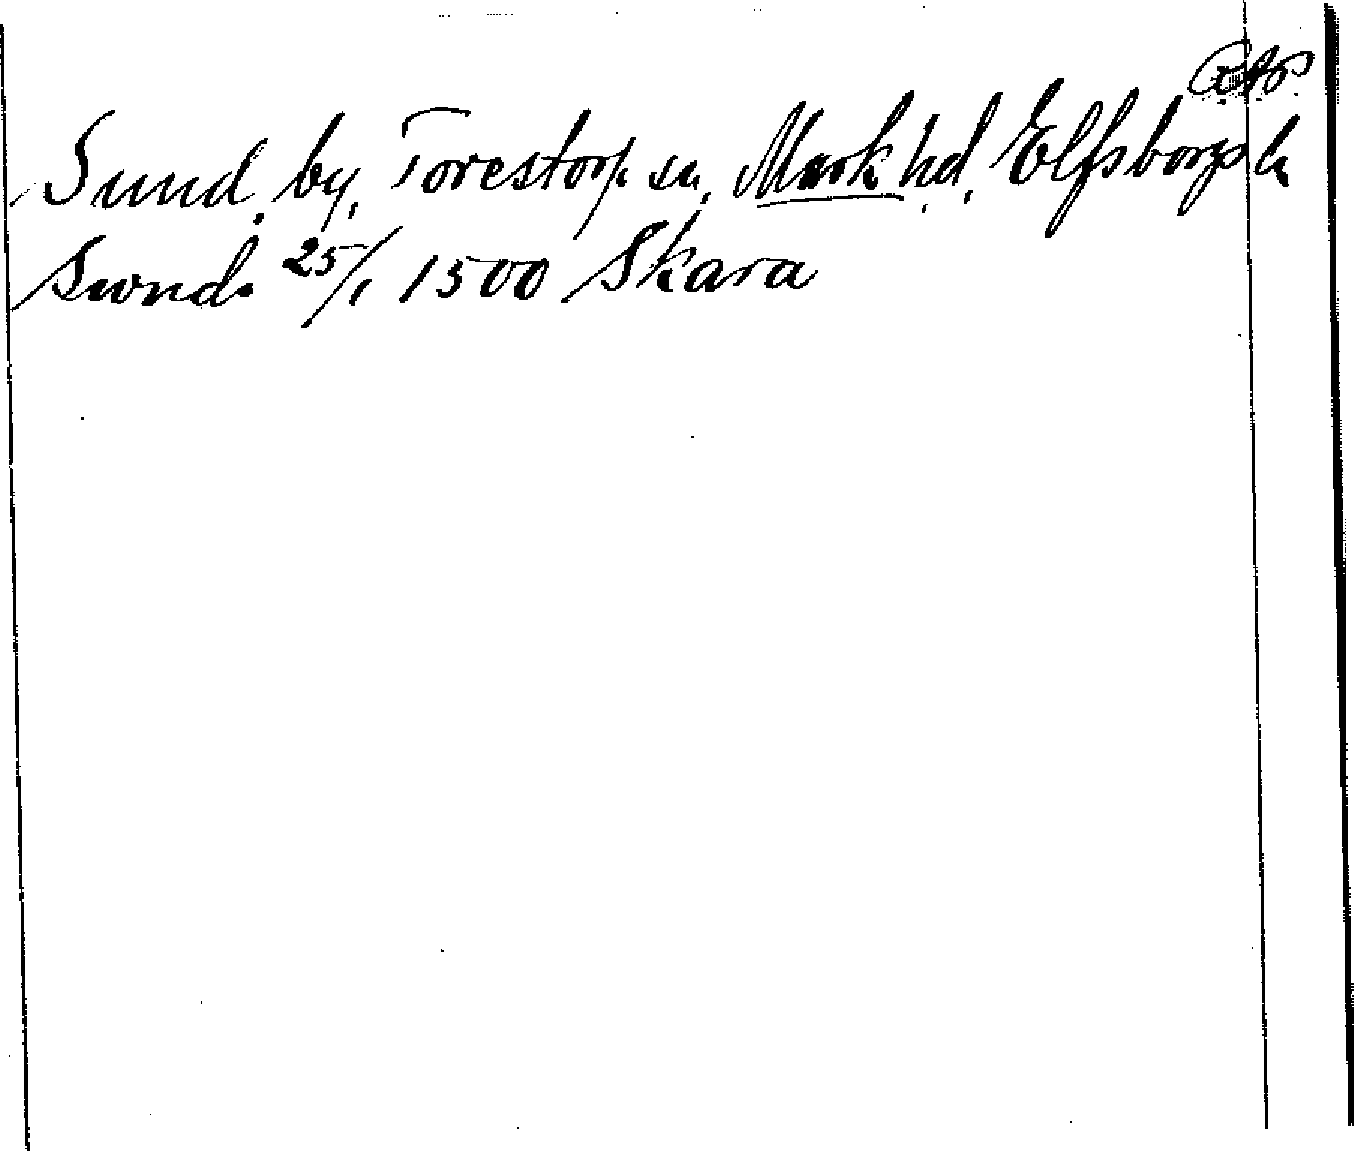 Sund, by, Torestorp sn, Mark hd, Elfsborgs l.
Swnd. 25/1 1500 Skara